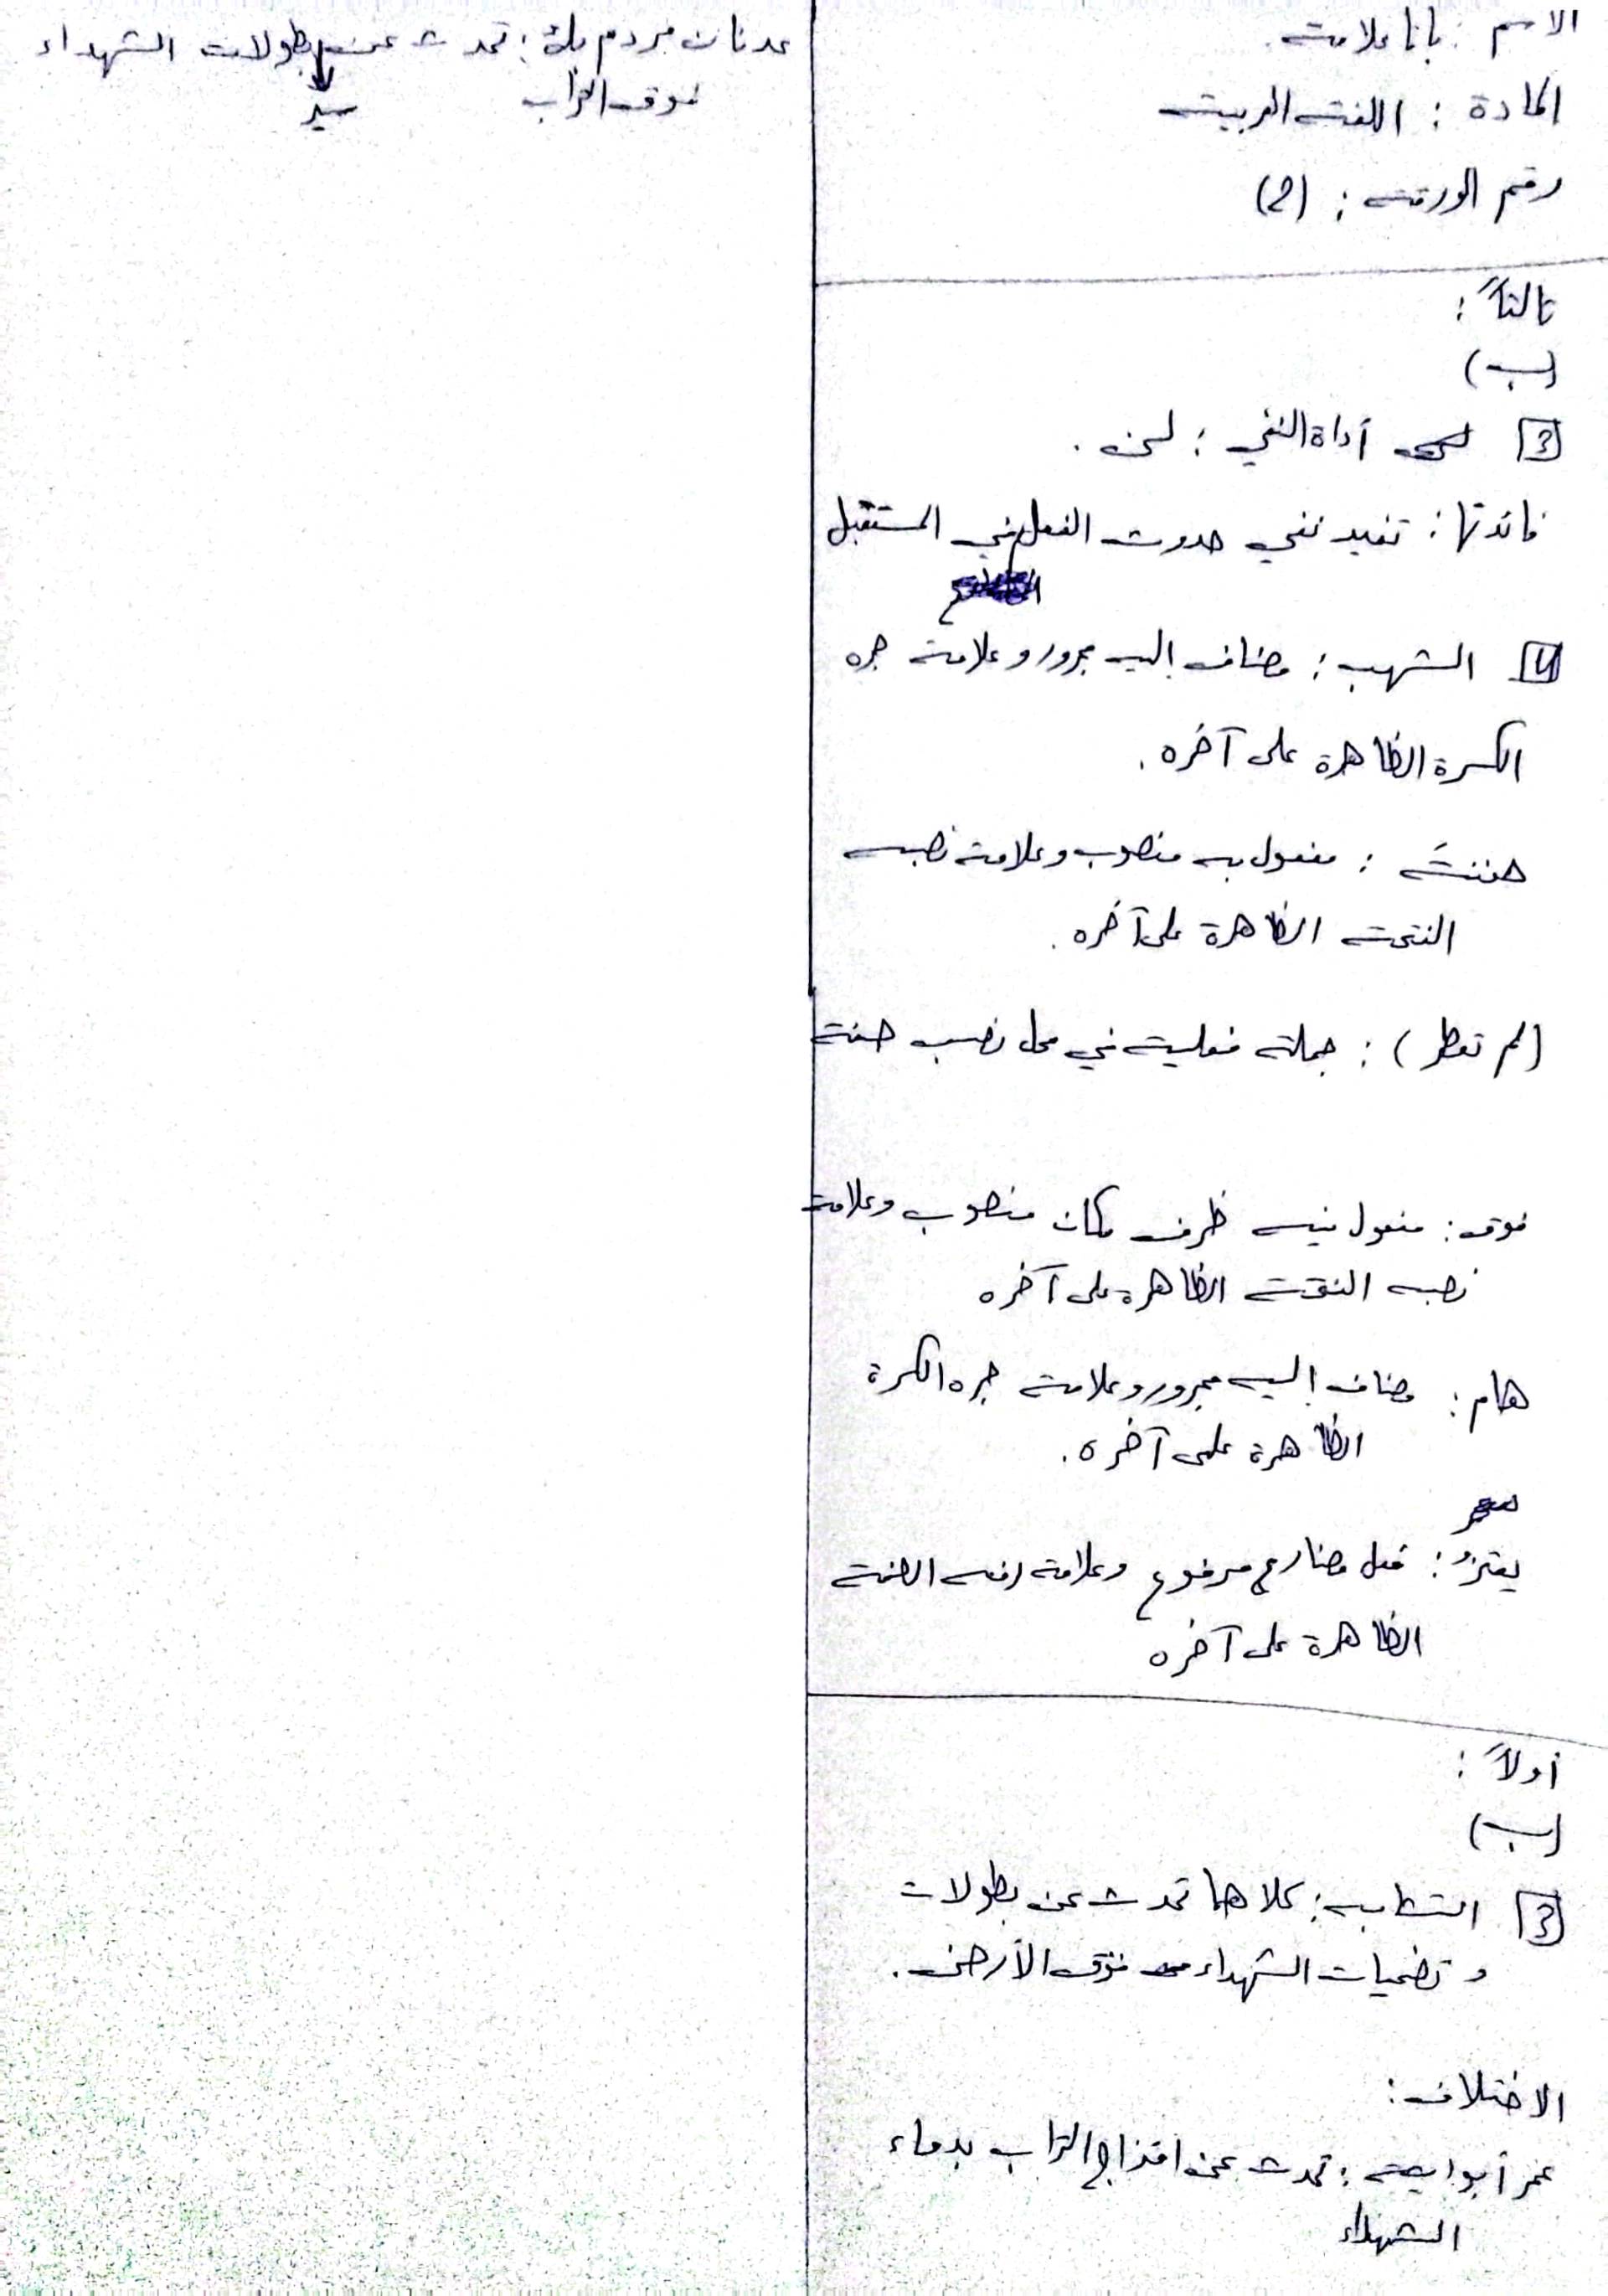 الاسم : بانا علامة .
المادة : اللغة العربية
رقم الورقة : (2)
ثالثاً :
(ب)
3 أداة النفي : لن .
فائدتها : تفيد نفي حدوث الفعل في المستقبل
4 الشهب : مضاف إليه مجرور وعلامة جره
الكسرة الظاهرة على آخره .
: مفعول به منصوب وعلامة نصبه
الفتحة الظاهرة على آخره .
(لم تعطر) : جملة فعلية في محل نصب صفة
فوق : مفعول فيه ظرف مكان منصوب وعلامة
نصبه الفتحة الظاهرة على آخره
هام : مضاف إليه مجرور وعلامة جره الكسرة
الظاهرة على آخره .
: فعل مضارع مرفوع وعلامة رفعه الضمة
الظاهرة على آخره
أولاً :
(ب)
3 التشابه : كلاهما تحدث عن بطولات
و تضحيات الشهداء فوق الأرض .
الاختلاف :
عمر أبو ريشة : تحدث عن امتزاج التراب بدماء
الشهداء
عدنان مردم بك : تحدث عن بطولات الشهداء
سير
فوق التراب